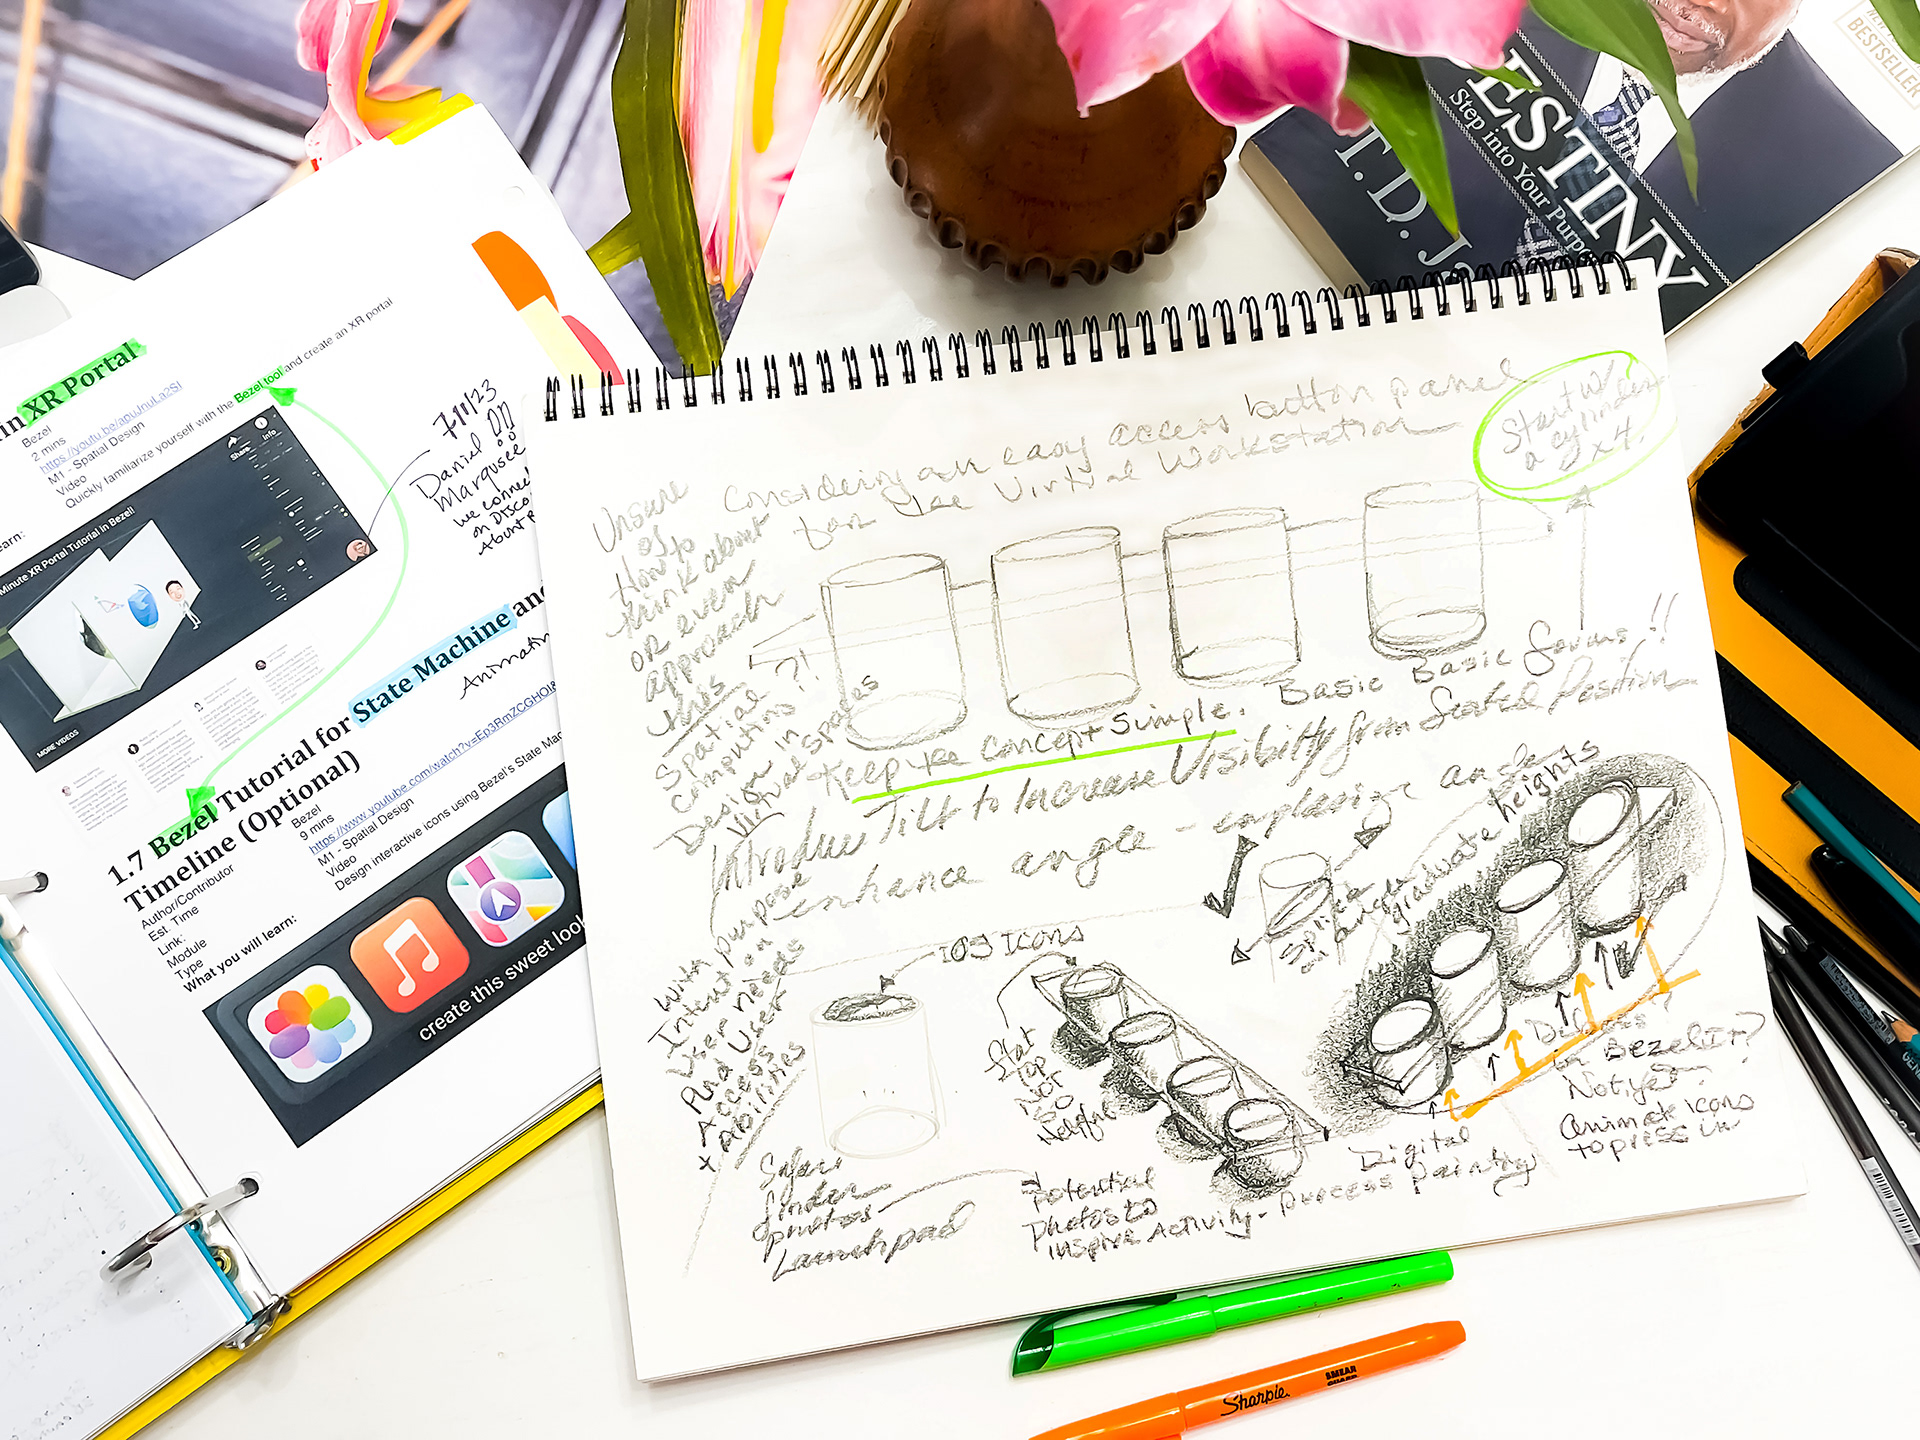 in XR Portal
Bezel
2 mins
https://youtu.be/apuJhuLa2SI
M1 - Spatial Design
Video
Quickly familiarize yourself with the Bezel tool and create an XR portal
earn:
Minute XR Portal Tutorial in Bezel!
Share
Info
MORE VIDEOS
7/11/23
Daniel
Marqusee
we connec
on Disco
About
1.7 Bezel Tutorial for State Machine and
Timeline (Optional)
Animati
Author/Contributor
Bezel
Est. Time
9 mins
Link:
https://www.youtube.com/watch?v=Ep3RmZCGHOI&
Module
M1 - Spatial Design
Type
Video
What you will learn:
Design interactive icons using Bezel's State Mac
create this sweet loo
ESTINY
Step into Your Purpo
T. D. Ja
BESTSELLER
Considering an easy access button panel
for the Virtual Workstation
Start w/
a cylinder
x4.
Unsure
of
How to
think about
OR even
approach
this ?!
Spatial
Computing
Design in
Virtual Spaces
With purpose
Intent on
User needs
And User
Access
+ Abilities
Basic Basic Forms!!
Keep the Concept Simple.
Introduce Tilt to Increase Visibility from Seated Position
enhance angle - emphasize angle
Splice
an angle
graduate heights
iOS Icons
flat
top
NOT
SO
Helpful
Safari
finder
photos
Launchpad
Potential
Photos to
Inspire Activity - process painting
Digital
in Bezel it?
Not yet?
Animate icons
to press in
Sharpie
SMEAR
GUARD